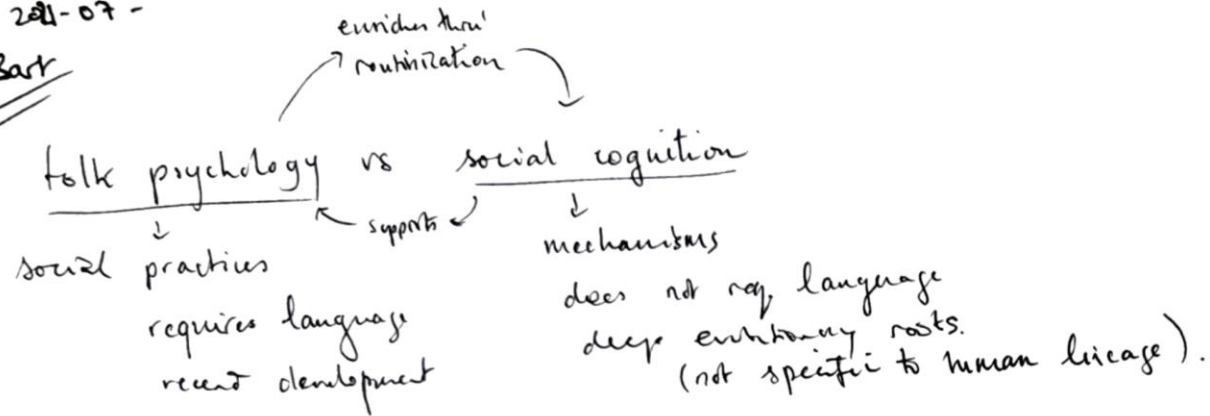 2021-07-
Bart
enriches thru'
routinization
folk psychology vs social cognition
supports
social practices
requires language
recent development
mechanisms
does not req. language
deep evolutionary roots.
(not specific to human lineage).